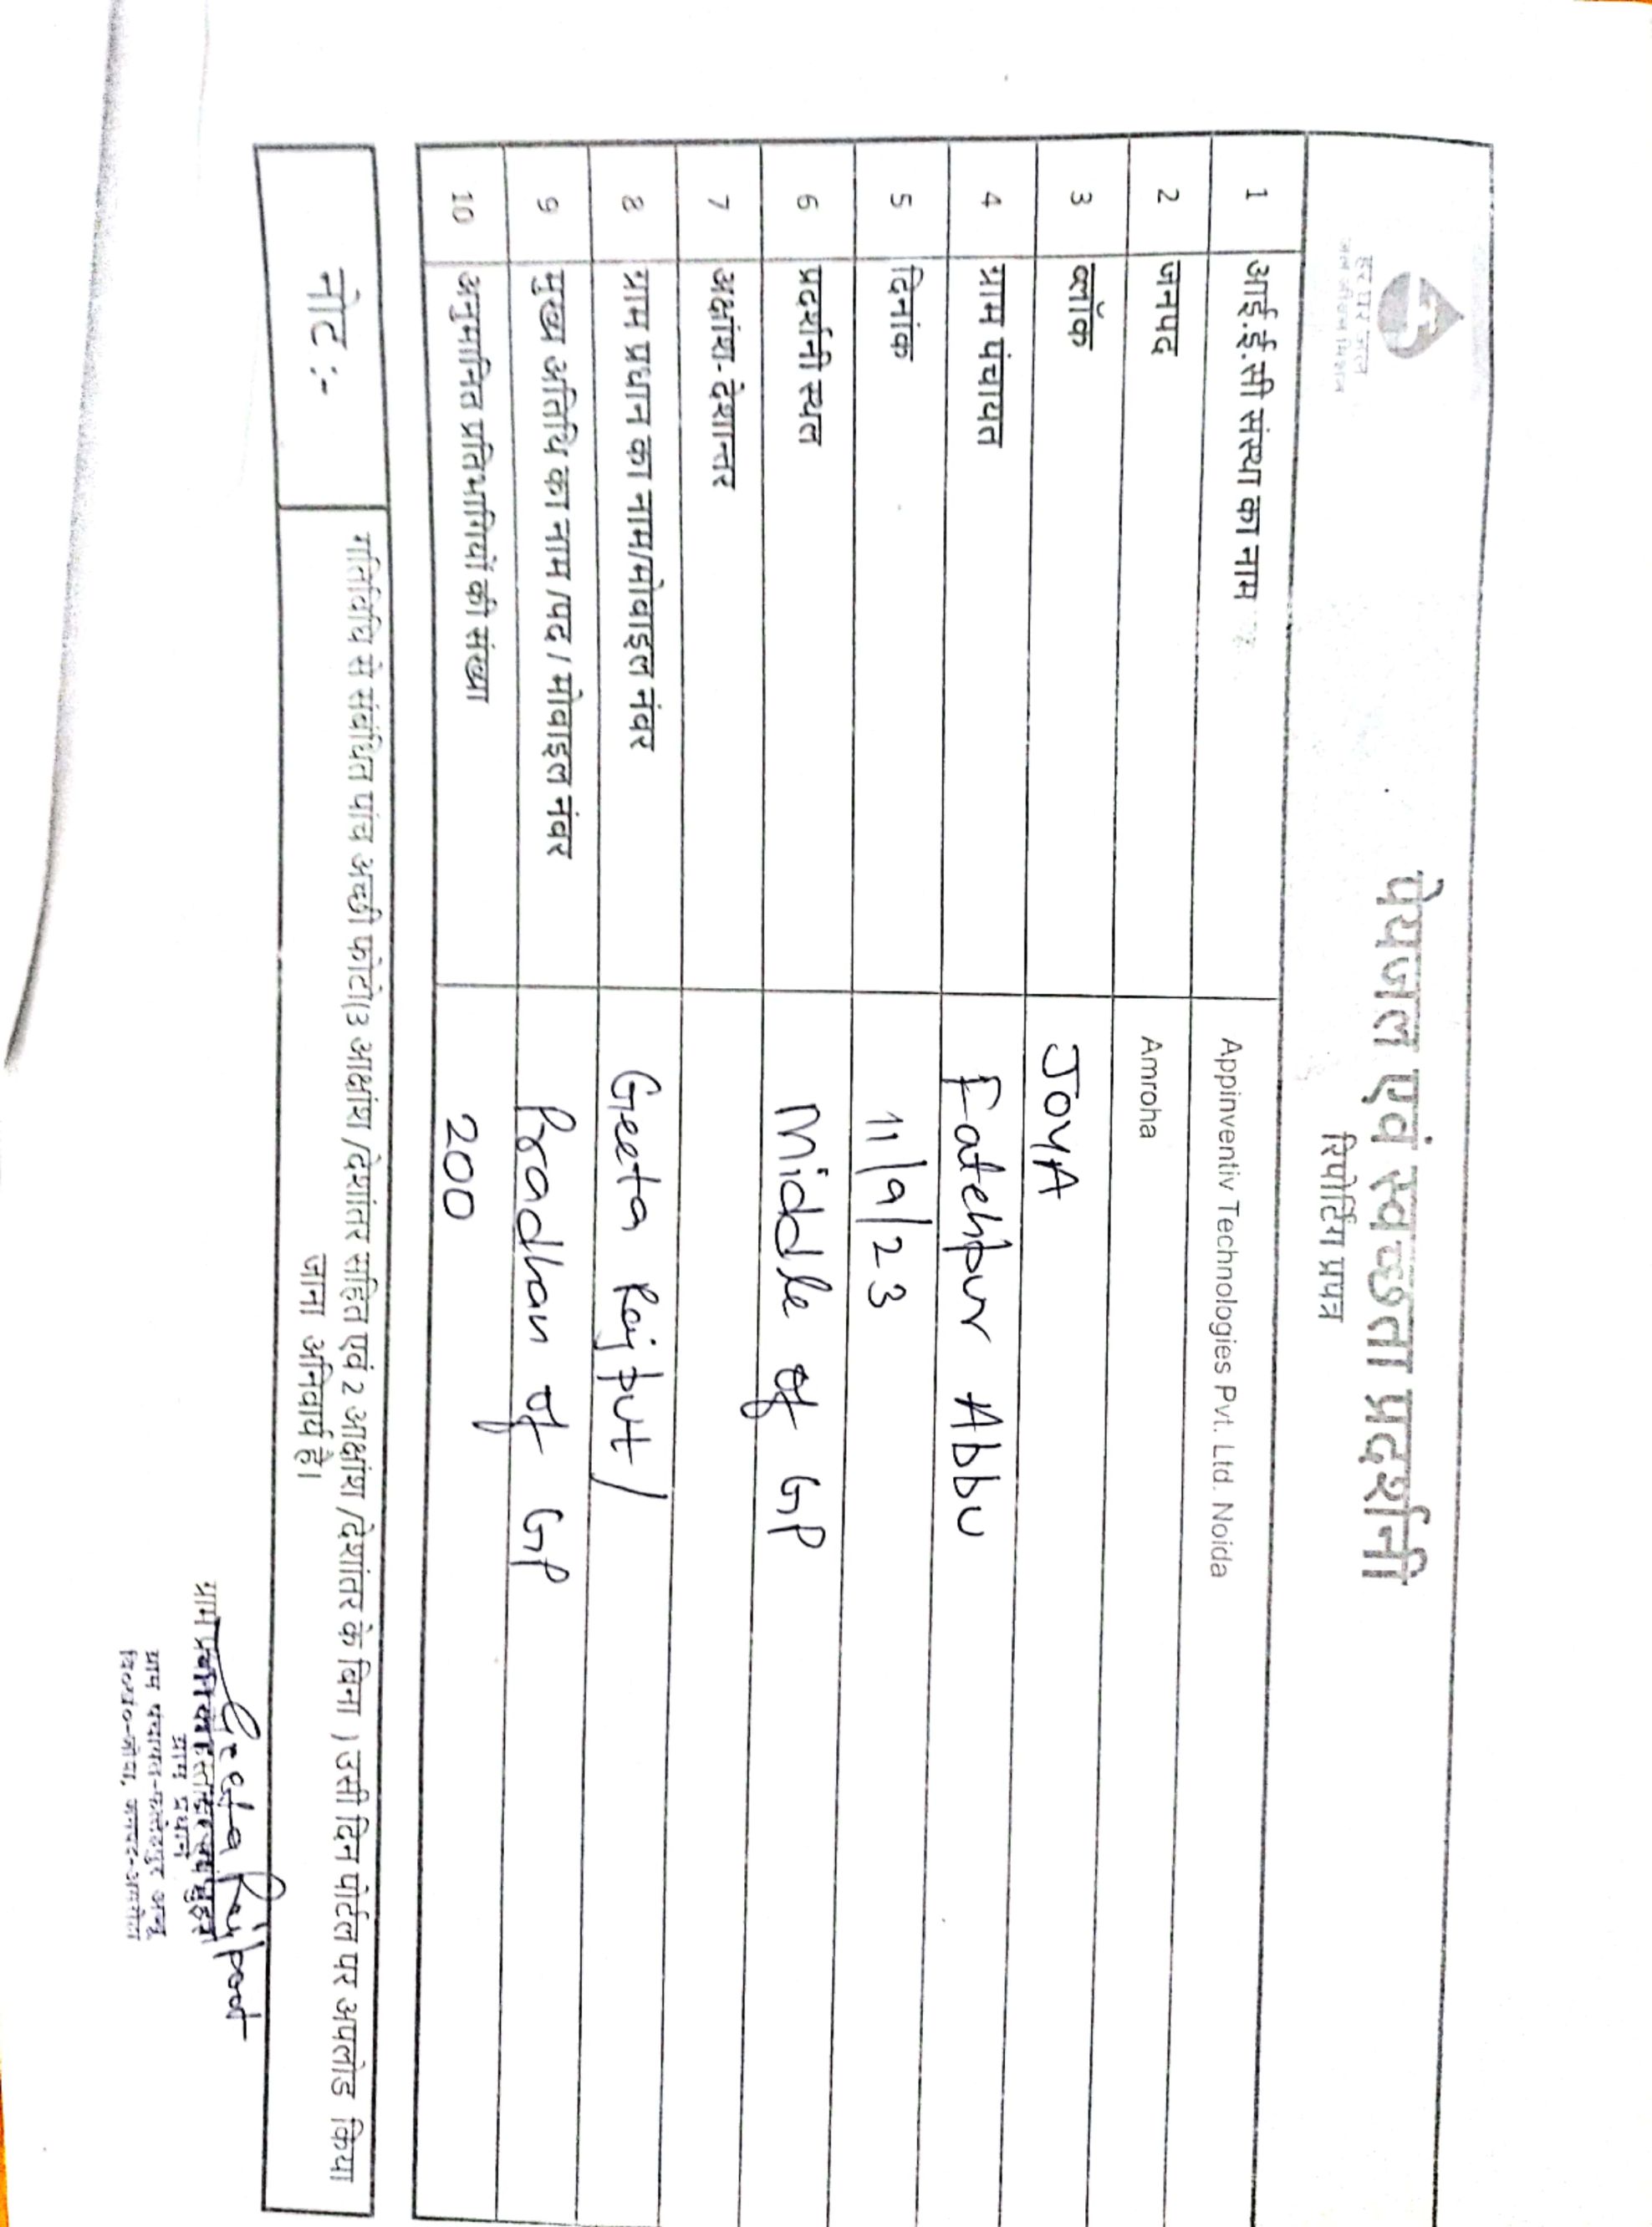 हर घर जल
जल जीवन मिशन
पेयजल एवं स्वच्छता प्रदर्शनी
रिपोर्टिंग प्रपत्र
1 आई.ई.सी संस्था का नाम Appinventiv Technologies Pvt. Ltd. Noida
2 जनपद Amroha
3 ब्लॉक JOYA
4 ग्राम पंचायत Fatehpur Abbu
5 दिनांक 11/9/23
6 प्रदर्शनी स्थल Middle of GP
7 अक्षांश-देशान्तर
8 ग्राम प्रधान का नाम/मोबाइल नंबर Geeta Rajput/
9 मुख्य अतिथि का नाम /पद / मोबाइल नंबर Pradhan of GP
10 अनुमानित प्रतिभागियों की संख्या 200
नोट :- गतिविधि से संबंधित पांच अच्छी फोटो(3 आक्षांश /देशांतर सहित एवं 2 आक्षांश /देशांतर के बिना ) उसी दिन पोर्टल पर अपलोड किया
जाना अनिवार्य है।
Geeta Rajpoot
ग्राम
ग्राम प्रधान
ग्राम पंचायत-फतेहपुर अब्बू
वि०ख०-जोया, जनपद-अमरोहा